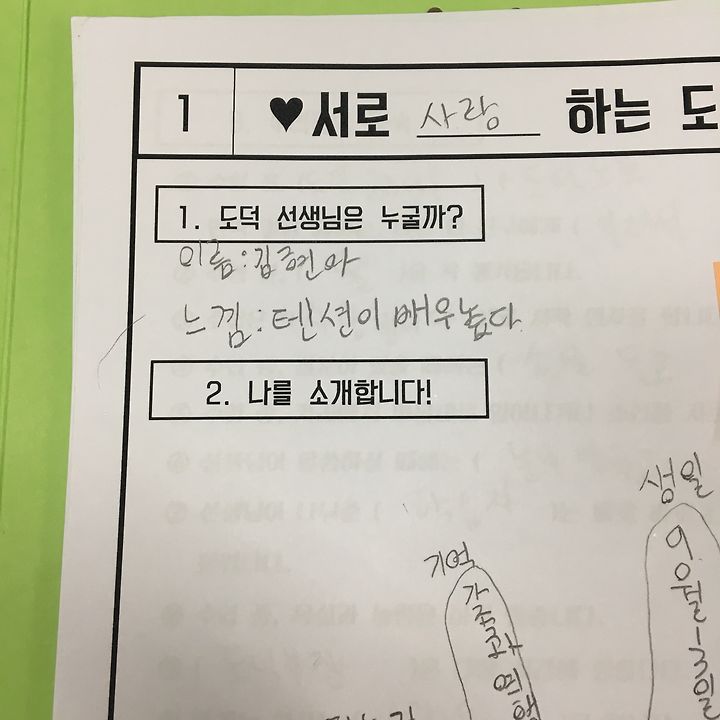 1 ♥서로 사랑 하는 도
1. 도덕 선생님은 누굴까?
이름:김현아
느낌:텐션이 배우높다.
2. 나를 소개합니다!
생일
이월13일
기억
가족과 여행